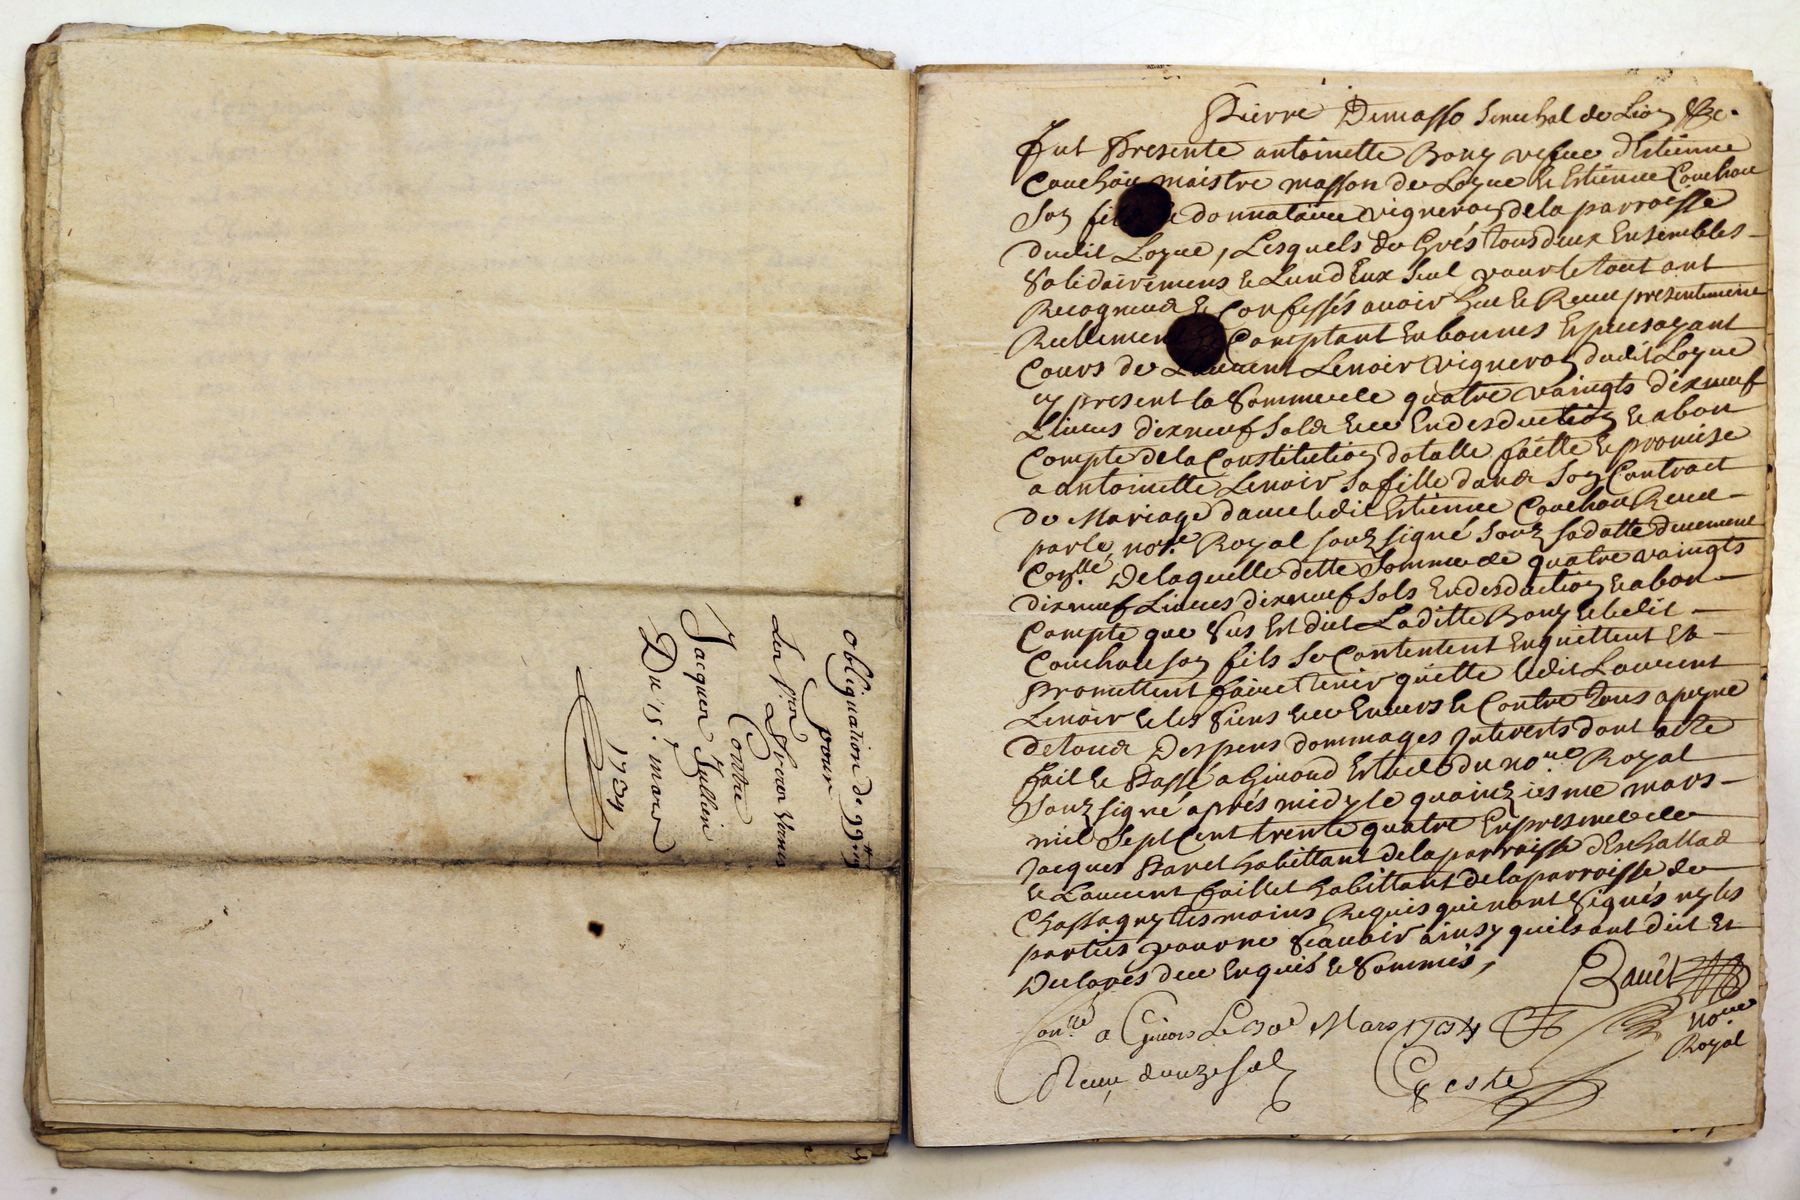 obligation de 99ᵗᵗ 19
pour
Contre
Jacques Jullien
Du 15ᵉ mars
1734
Pierre Demasso senechal de Lion &c.
Fut Presente antoinette Bony vefue d'Estienne
Couchou maistre masson de Loyue & Estienne Couchou
Son fils & donnataire vigneron de la parroisse
dudit Loyue, Lesquels de Grés tous deux Ensembles
Solidairemens & Lun d'Eux seul pour le tout ont
Recogneus & Confessés auoir Heu & Receu presentement
Reellement & Comptant En bonnes Especes ayant
Cours de Laurent Lenoir vigneron dudit Loyue
cy present la Somme de quatre vaingts dixneuf
Liures dixneuf Sols & ce En desduction & abon
Compte de la Constitution dotalle faitte & promise
a antoinette Lenoir sa fille dans son Contract
de Mariage d'auec ledit Estienne Couchou Receu
par le noʳᵉ Royal souzsigné souz sa datte duement
Conˡˡᵉ De laquelle dette Somme de quatre vaingts
dixneuf Liures dixneuf Sols En desduction & abon
Compte que Sus Est dict Laditte Bony & ledit
Couchou son fils se Contentent Enquittent Et
Promettent faire tenir quitte ledit Laurent
Lenoir & les Siens & ce Enuers & Contre Tous a peyne
de tous Despens dommages Interets dont acte
fait & Passé a Giuord Estude du noʳᵉ Royal
Souzsigné aprés midy le quainziesme mars
mil Sept Cent trente quatre En presence de
Jacques Baret habittant de la parroisse d'Echallas
& Laurent faillet habittant de la parroisse de
Chassagny tesmoins Requis qui n'ont Signés ny les
parties pour ne Scauoir ainsy quils ont dict Et
Declarés de ce Enquis & Sommés,
noʳᵉ
Royal
Conˡˡᵉ a Giuors Le 30ᵉ Mars 1734
Receu douze sols